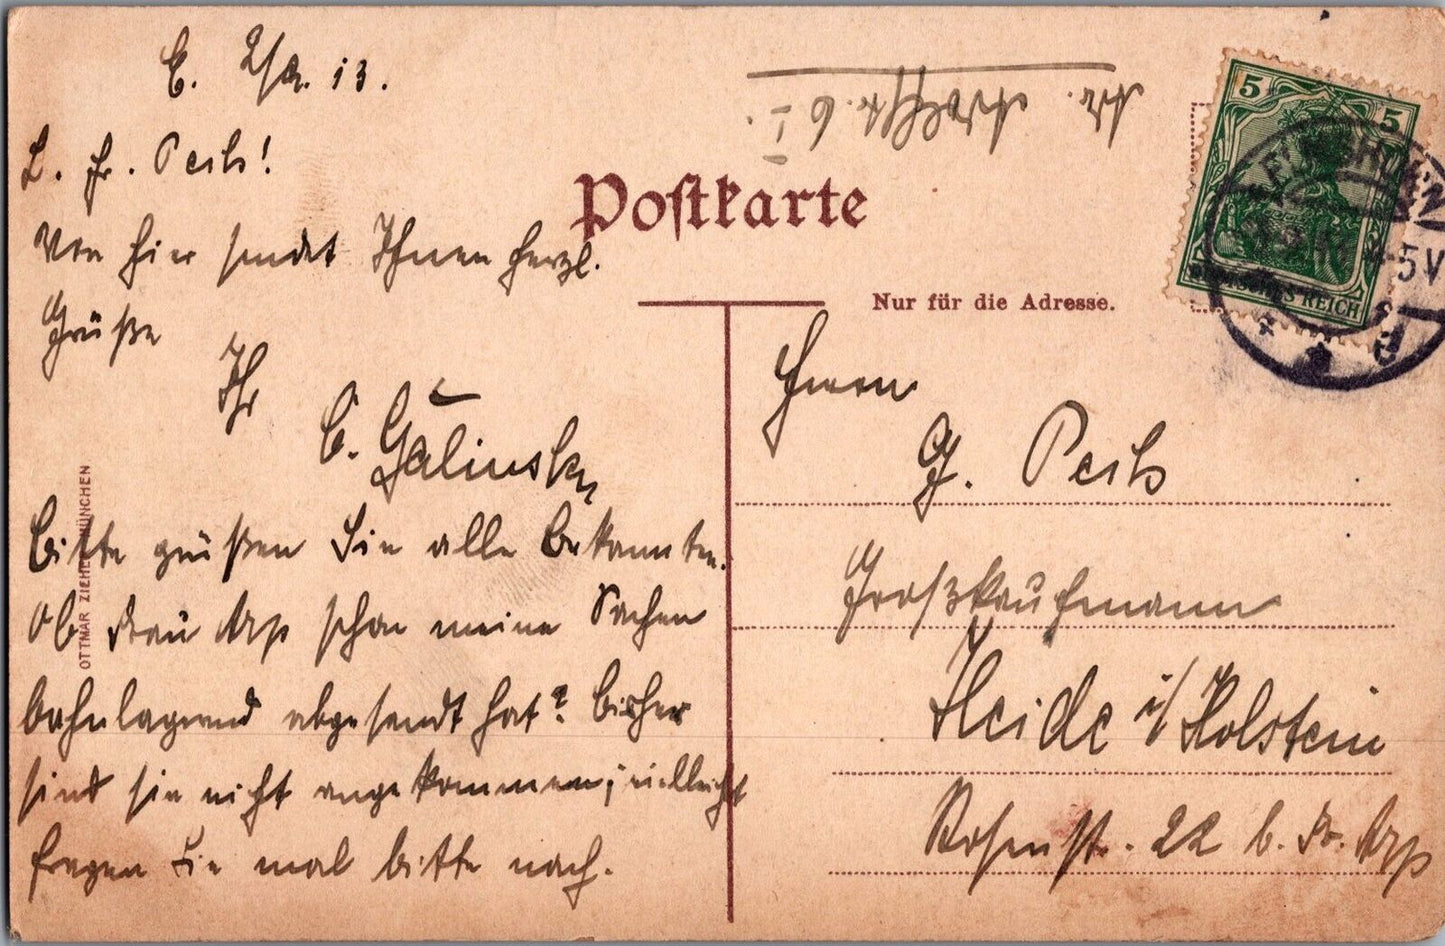 E. 2/2. 13.
L. Fr. Peils!
Von hier sendet Ihnen herzl.
Grüße
Ihr
E. Galinsky
Bitte grüßen Sie alle Bekannten.
Ob Frau Arp schon meine Sachen
bahnlagernd abgesandt hat? Bisher
sind sie nicht angekommen; vielleicht
fragen Sie mal bitte nach.
OTTMAR ZIEHER MÜNCHEN
Postkarte
Nur für die Adresse.
5 5
DEUTSCHES REICH
5 V
Herrn
G. Peils
Großkaufmann
Heide i/Holstein
Rosenstr. 22 b. Fr. Arp